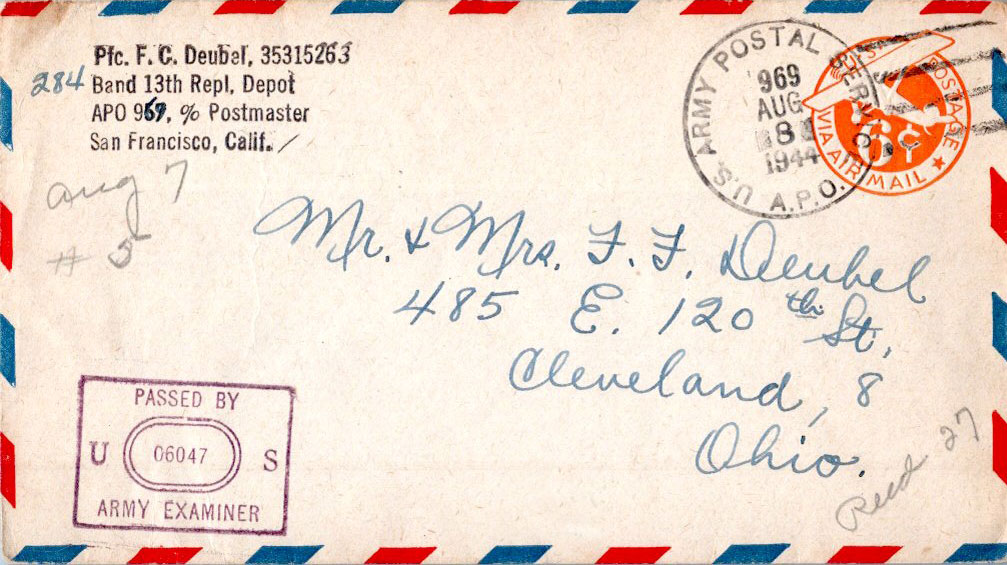 Pfc. F. C. Deubel, 35315263
284 Band 13th Repl, Depot
APO 969, % Postmaster
San Francisco, Calif.
Aug 7
# 5
ARMY POSTAL SERVICE
969
AUG
8
1944
U.S. A.P.O.
U.S. POSTAGE
6¢
VIA AIR MAIL
Mr. & Mrs. F. F. Deubel
485 E. 120th St.
Cleveland, 8
Ohio.
PASSED BY
U 06047 S
ARMY EXAMINER
Recd 27